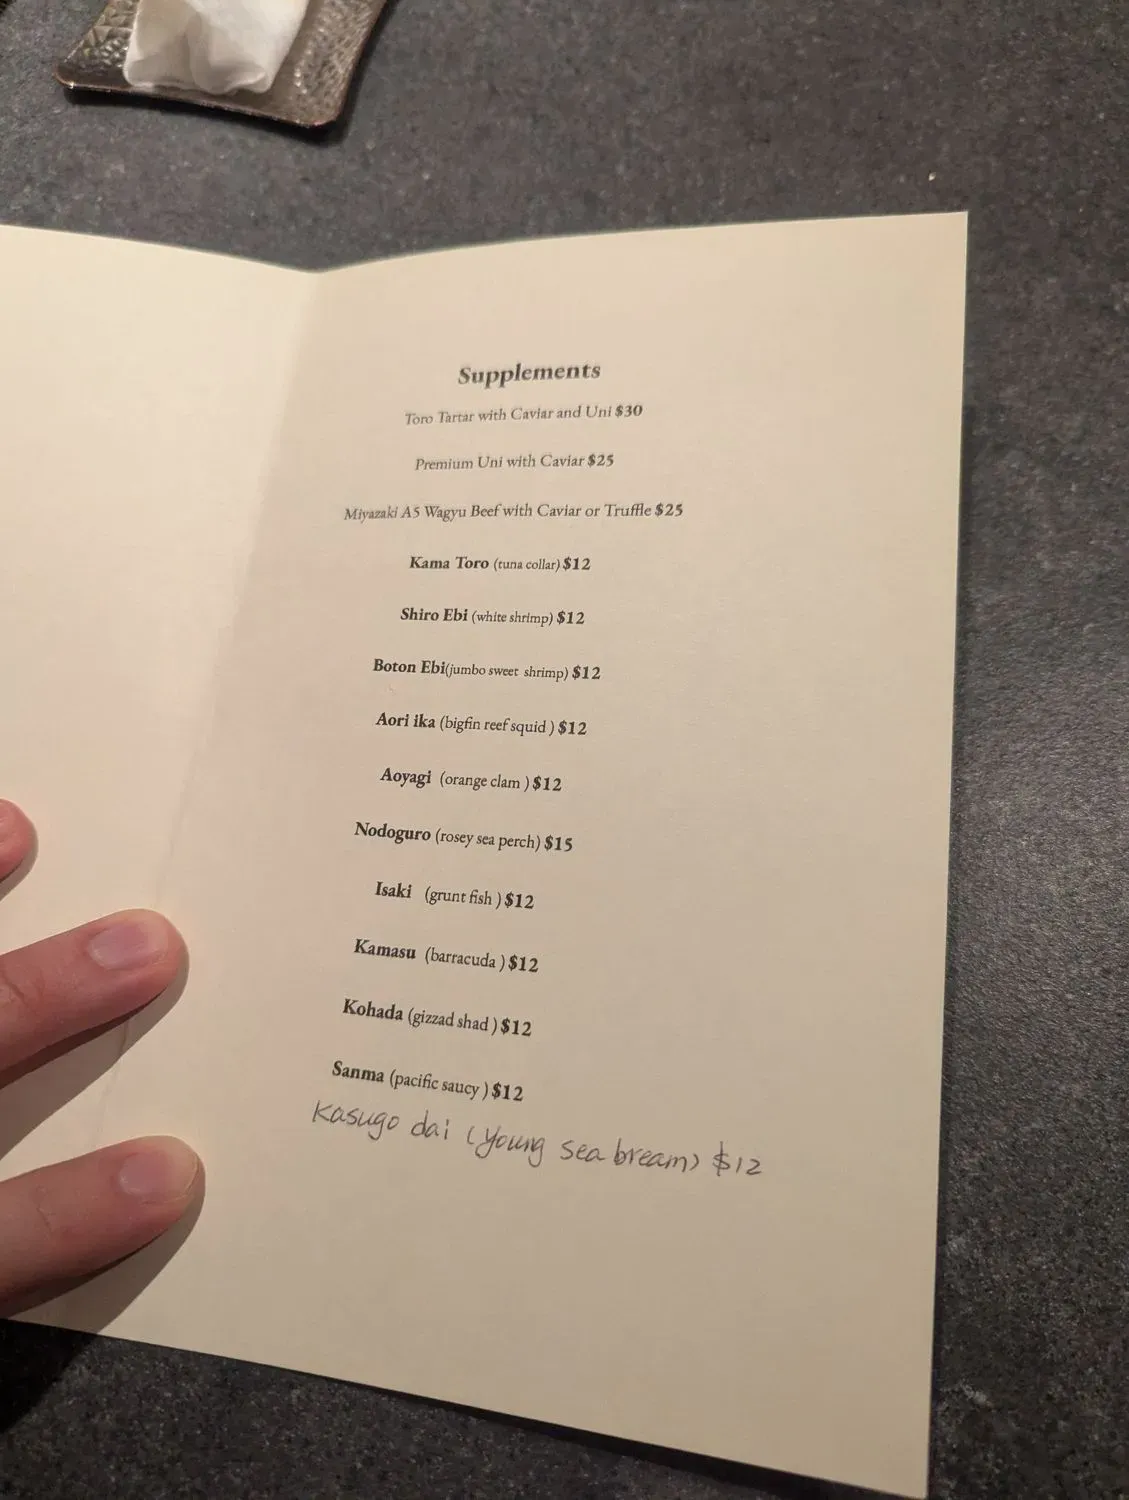 Supplements
Toro Tartar with Caviar and Uni $30
Premium Uni with Caviar $25
Miyazaki A5 Wagyu Beef with Caviar or Truffle $25
Kama Toro (tuna collar) $12
Shiro Ebi (white shrimp) $12
Boton Ebi(jumbo sweet shrimp) $12
Aori ika (bigfin reef squid ) $12
Aoyagi (orange clam ) $12
Nodoguro (rosey sea perch) $15
Isaki (grunt fish ) $12
Kamasu (barracuda ) $12
Kohada (gizzad shad ) $12
Sanma (pacific saucy ) $12
Kasugo dai (young sea bream) $12